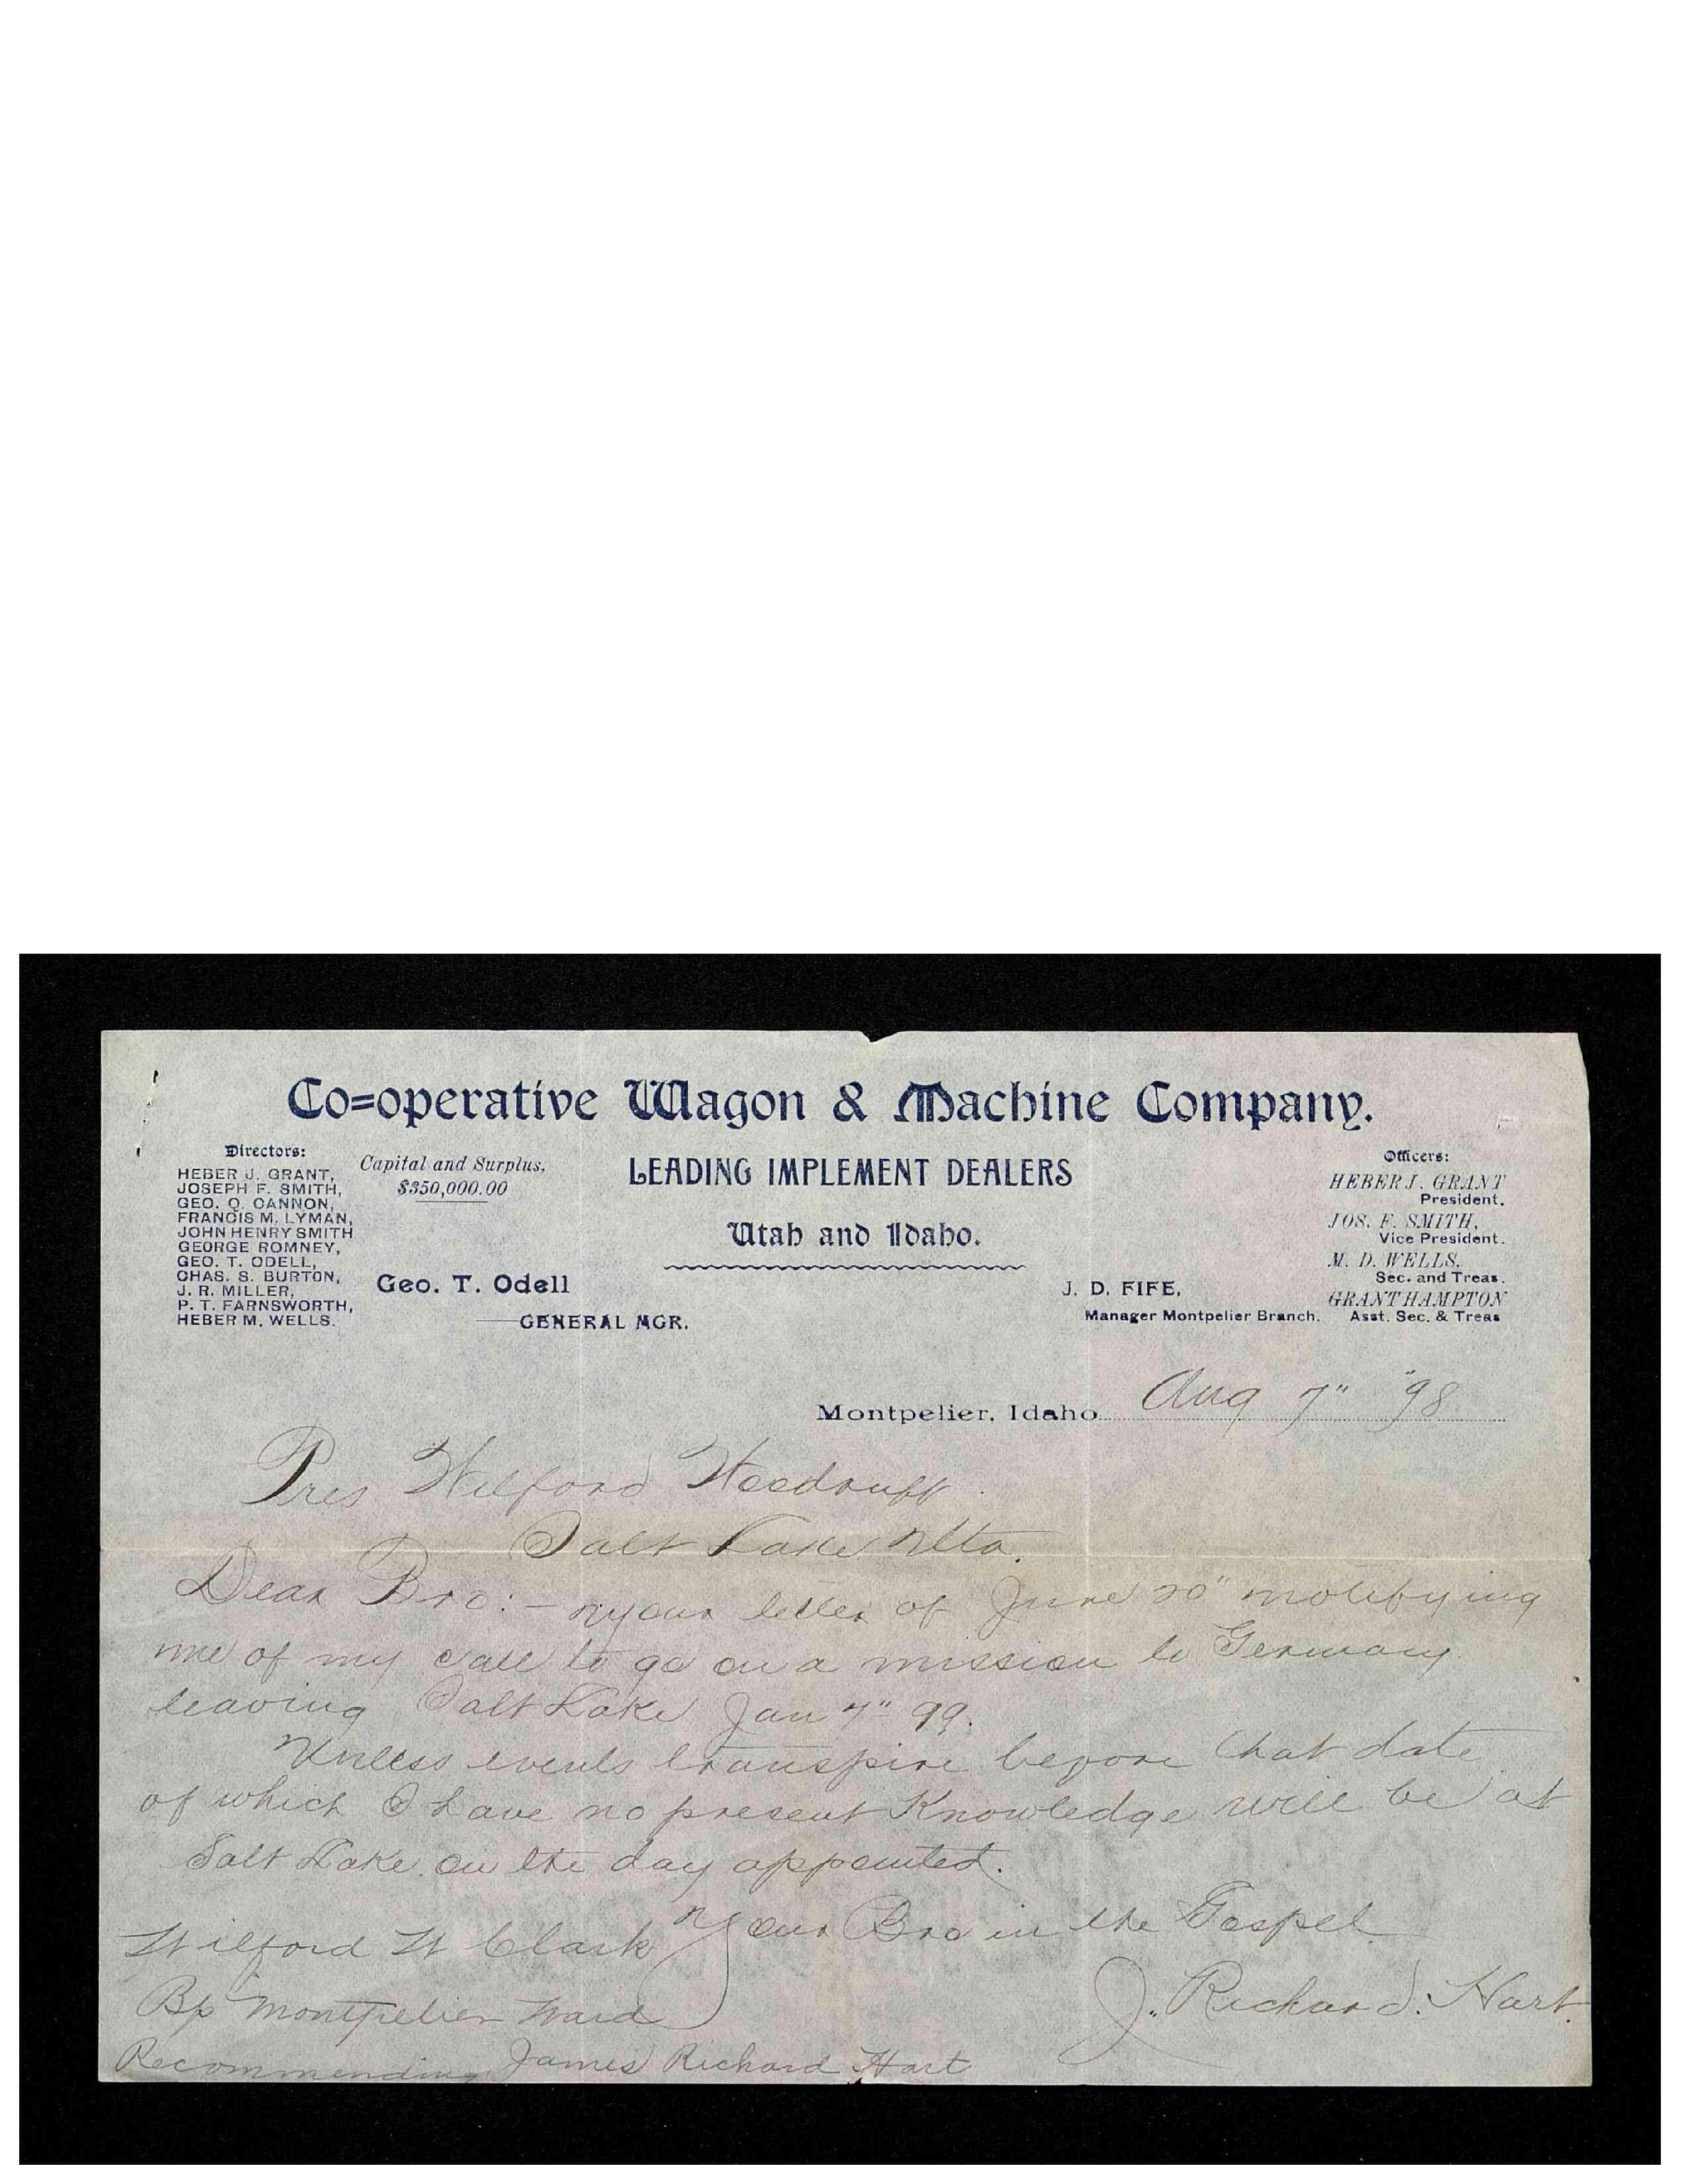 Co=operative Wagon & Machine Company.
Directors:
HEBER J. GRANT,
JOSEPH F. SMITH,
GEO. Q. CANNON,
FRANCIS M. LYMAN,
JOHN HENRY SMITH
GEORGE ROMNEY,
GEO. T. ODELL,
CHAS. S. BURTON,
J. R. MILLER,
P. T. FARNSWORTH,
HEBER M. WELLS.
Capital and Surplus,
$350,000.00
Geo. T. Odell
GENERAL MGR.
LEADING IMPLEMENT DEALERS
Utah and Idaho.
J. D. FIFE,
Manager Montpelier Branch.
Officers:
HEBER J. GRANT
President.
JOS. F. SMITH,
Vice President.
M. D. WELLS,
Sec. and Treas.
GRANT HAMPTON
Asst. Sec. & Treas
Montpelier, Idaho Aug 7" "98
Pres Wilford Woodruff
Salt Lake Uta.
Dear Bro: - your letter of June 20" notifying
me of my call to go on a mission to Germany
leaving Salt Lake Jan 7" 99.
Unless events transpire before that date
of which I have no present Knowledge will be at
Salt Lake on the day appointed.
Your Bro in the Gospel
J. Richard. Hart.
Wilford W Clark
Bp Montpelier Ward
Recommending James Richard Hart